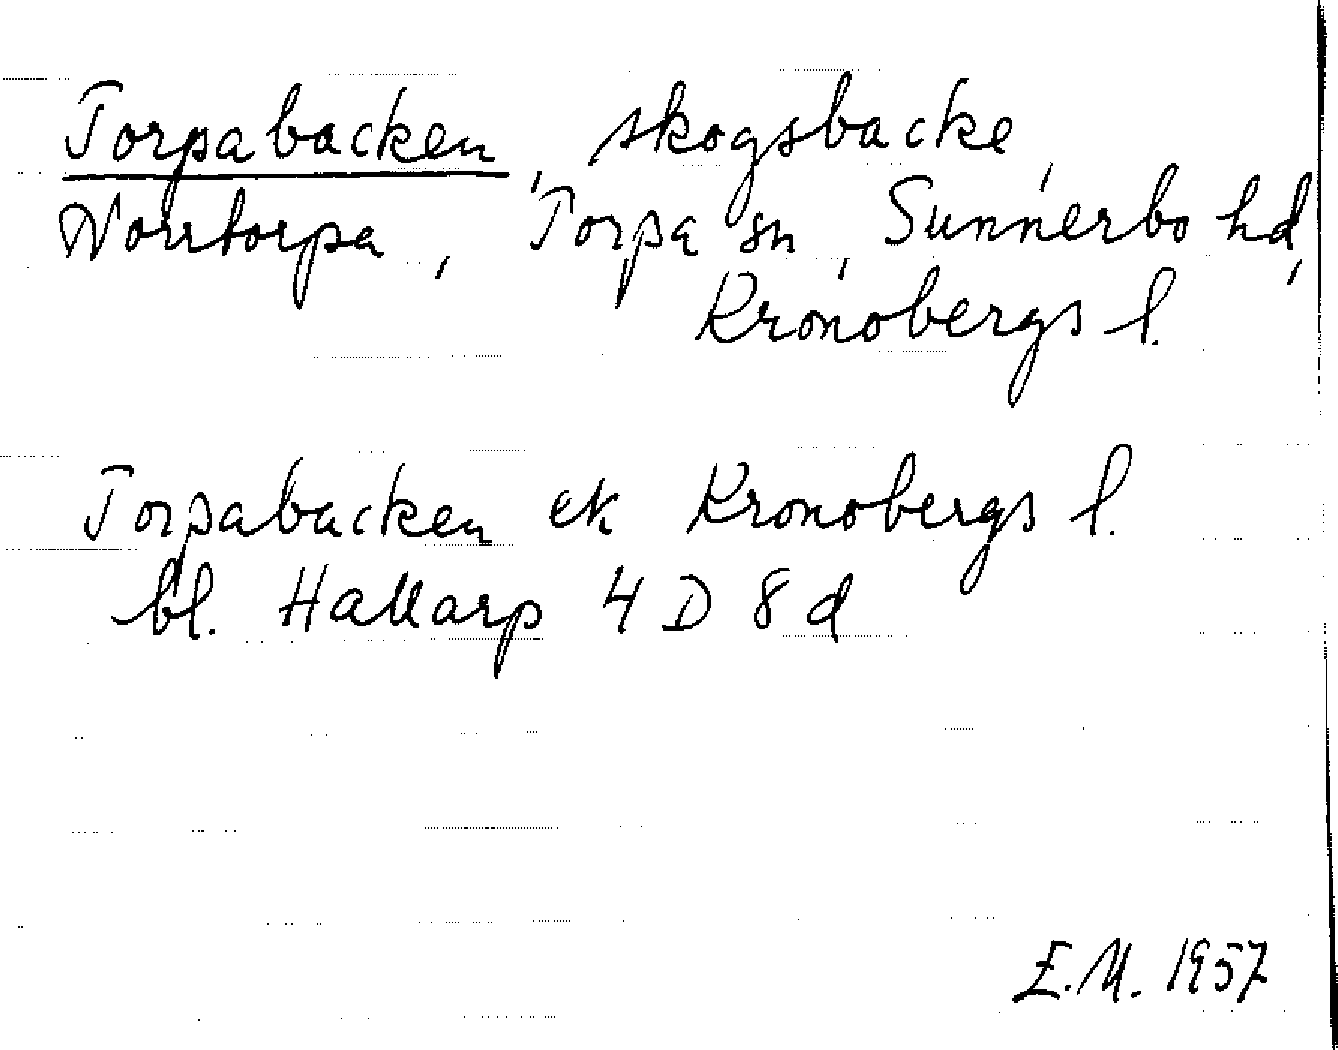 Torpabacken, skogsbacke,
Norrtorpa, Torpa sn, Sunnerbo hd,
Kronobergs l.
Torpabacken ek Kronobergs l.
bl. Hallarp 4 D 8 d
E.M. 1957